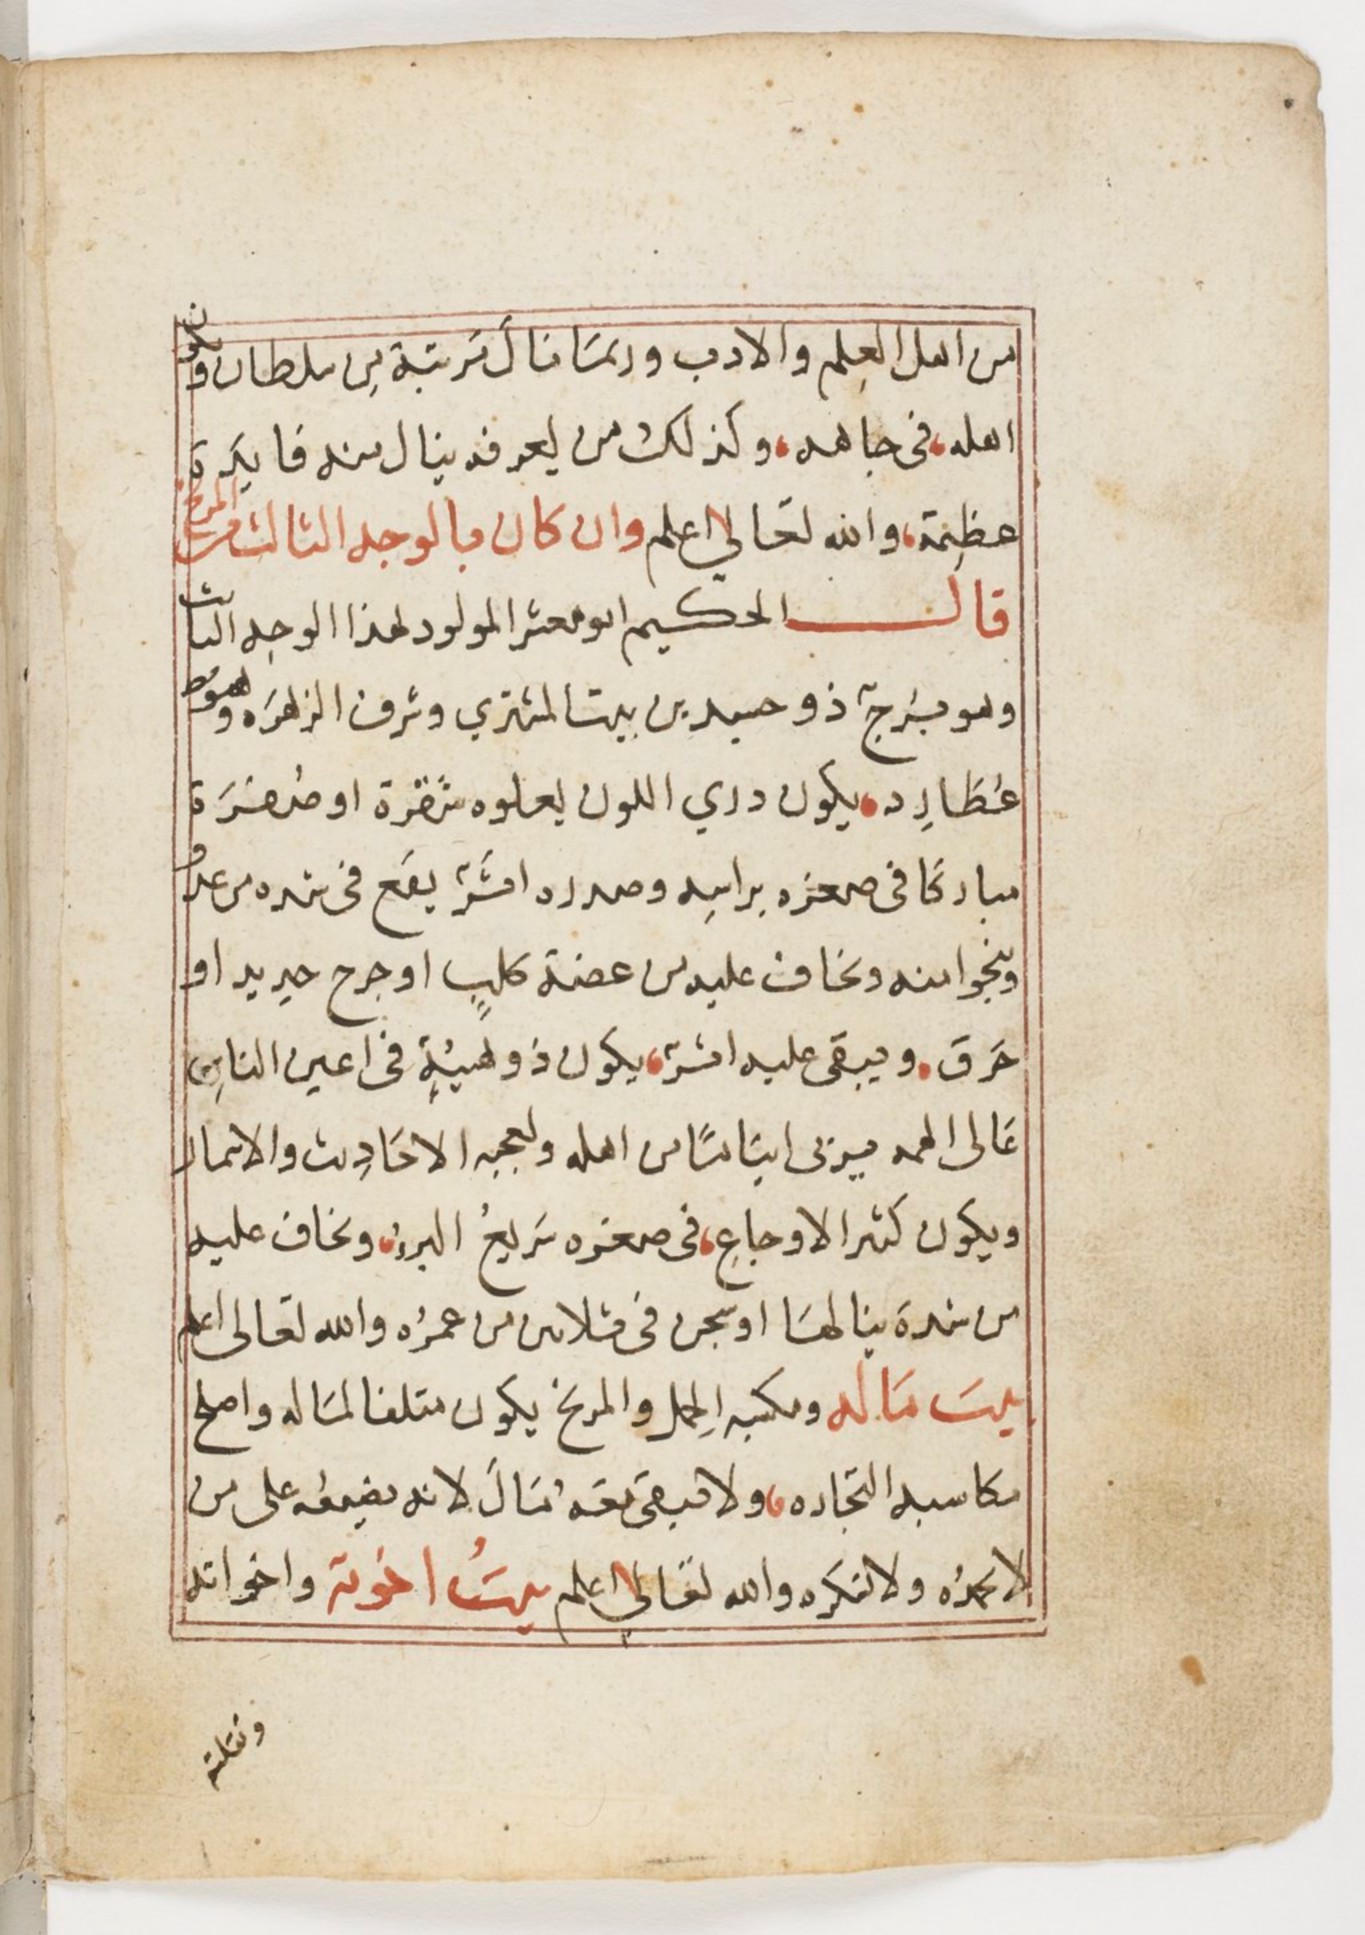 من اهل العِلم والادب وربمَا نَالَ مَرتبَة مِن سلطان ويكون
اهله، في جاهه، وكذلك من يعرفه ينال منه فايدَة
عظيمَة، والله تعَالي اعلم وان كان بالوجه الثالث من المريخ
قال الحكيم ابو معشر المولود لهذا الوجه الثالث
وهو بُرج ذو جسدين بيت المشتري وشرف الزهرَه وهبوط
عُطَارِد، يكون دري اللون يعلوه شُقرة او صُفرَة
مباركا في صغره براسِه وصدره اثَر يقَع في شده من علو
وينجوا منه ويخاف عليه من عضة كلبٍ او جرح حديد او
حَرق، ويبقى عليه اثر، يكون ذو هَيبُةٍ في اعين الناسِ
عَالى الهمه يربى ايتامًا من اهله ويعجبه الاحَادِيث والاسمار
ويكون كثير الاوجاعِ، في صغره سَريعُ البرء، ويخاف عليه
من شدة ينالهَا او سجن في ثلاثين من عمرُه والله تعَالى اعلم
بيتَ مَاله ومكسبه الحِمل والمريخ يكون متلفا لمَاله واصلح
مكاسبه التجَاره، ولا يبقىَ معَهُ مَالَ لانه يضيعُه على من
لا يحمدُه ولا يشكره والله تعَالي اعلم بيتُ اخوته واخواته
ونقلته